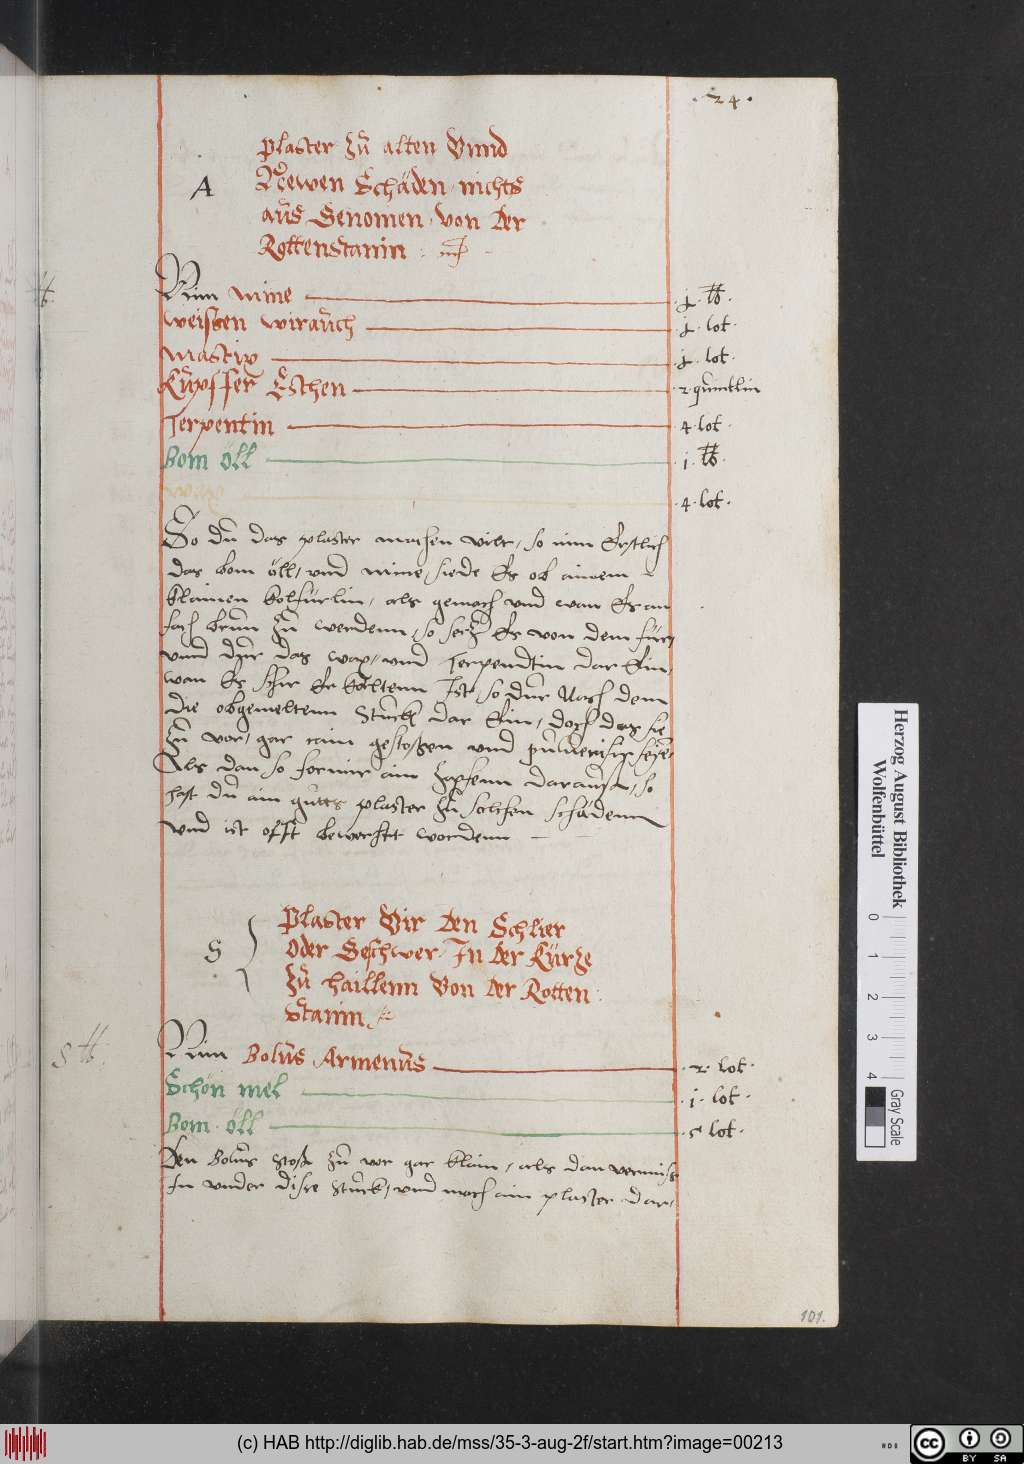 · 24 ·
Plaster Zů alten Vnnd
A
Newen Schäden nichts
aůs Genomen von der
Rottenstanin
Nim mine
·j· ℔·
weissen wiraůch
·j· lot·
Mastix
·j· lot·
Kupffer Eschen
·2· quintlin
Terpentin
·4· lot·
Bom öll
·j· ℔·
wax
·4· lot·
So dů das plaster machen wilt, so nim Erstlich
das bom öll, vnd mine, siede Es ob ainem
klainen kolfürlin, als gemach vnd wan Es an
fach brůn Zů werdenn, so setz Es von dem für,
vnnd důr das wax, vnd Terpendtin dar Ein,
wan Es schir Er kaltenn Ist, so důr Nach dem
die obgemeltenn Stuckh dar Ein, doch das sie
Zů vor, gar rain gestossen vnd
Als dan so formir ain Zapfenn daraůs, so
hast dů ain guttes plaster Zů solchen schädenn
vnnd ist offt bewerhtt wordenn
Plaster Vir den Schlier
S
Oder Geschwer In der Kürtze
Zů haillenn Von der Rotten
Stanin
Nim Bolůs Armenůs
·2· lot·
Schön mel
·j· lot·
Bom öll
·5· lot·
Den Bolůs stoss Zů vor gar klain, als dan vermisch
In vnder dise Stuckh, vnd mach ain plaster dar,
101.
Herzog August Bibliothek
Wolfenbüttel
0 1 2 3 4
Gray Scale
(c) HAB http://diglib.hab.de/mss/35-3-aug-2f/start.htm?image=00213
cc BY SA